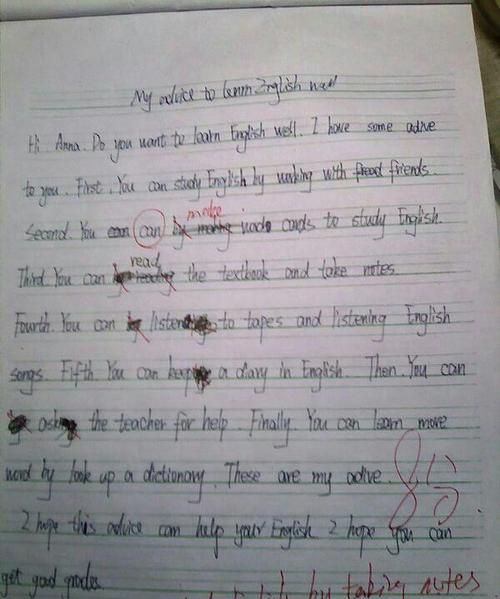 My advice to learn English well
Hi Anna. Do you want to learn English well. I have some adive
to you. First, You can study English by working with friends.
make
Second You can word cards to study English.
read
Third. You can the textbook and take notes
Fourth. You can listen to tapes and listening English
songs. Fifth You can keep a diary in English. Then. You can
ask the teacher for help. Finally. You can learn more
word by look up a dictionary. These are my adive.
85
I hope this advice can help your English I hope you can
get good grades.
by taking notes